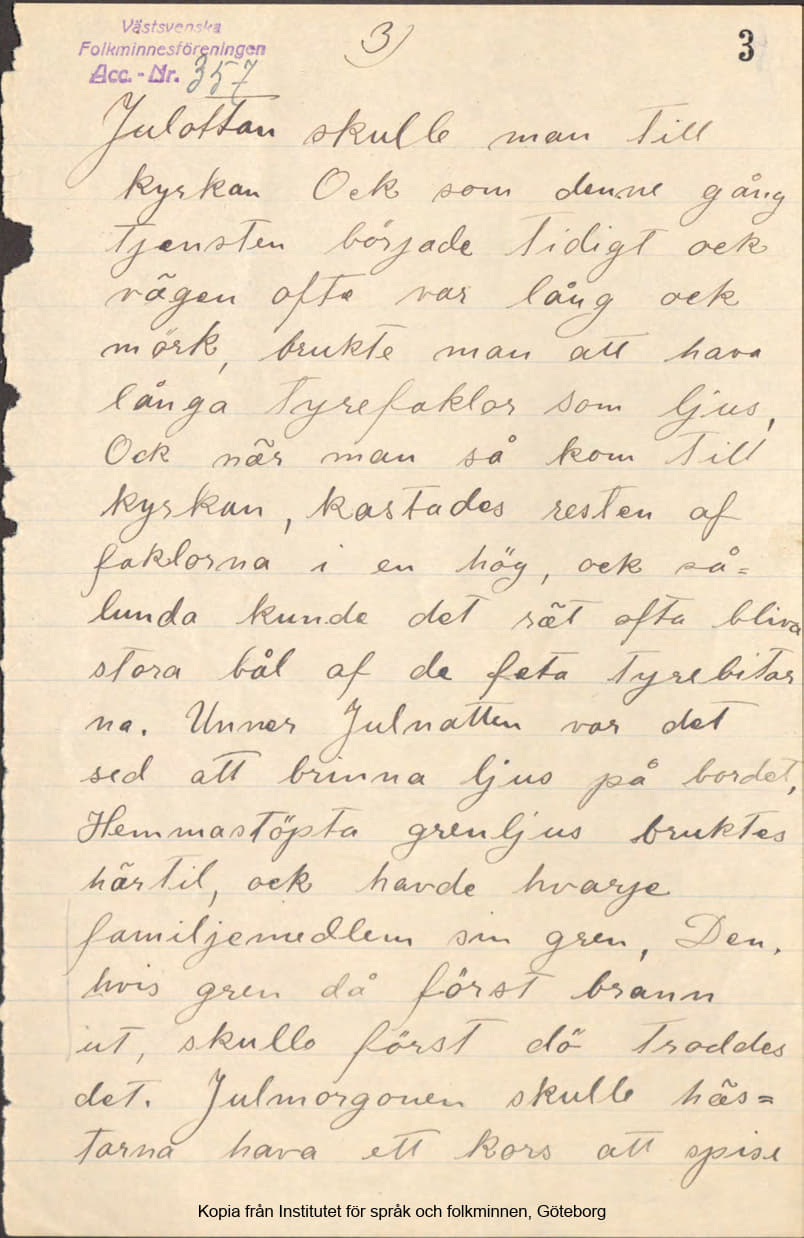 Västsvenska
Folkminnesföreningen
Acc. - Nr. 357
3)
3
Julottan skulle man till
kyrkan Ock som denne gång
tjensten började tidigt ock
vägen ofta var lång ock
mörk, brukte man att hava
långa tyrefaklor som ljus,
Ock när man så kom till
kyrkan, kastades resten af
faklorna i en hög, ock så=
lunda kunde det rät ofta bliva
stora bål af de feta tyrebitar
na. Unner Julnatten var det
sed att brinna ljus på bordet,
Hemmastöpta grenljus bruktes
härtil, ock havde hvarje
familjemedlem sin gren, Den,
hvis gren då först brann
ut, skulle först dö troddes
det. Julmorgonen skulle häs=
tarna hava ett kors att spise
Kopia från Institutet för språk och folkminnen, Göteborg